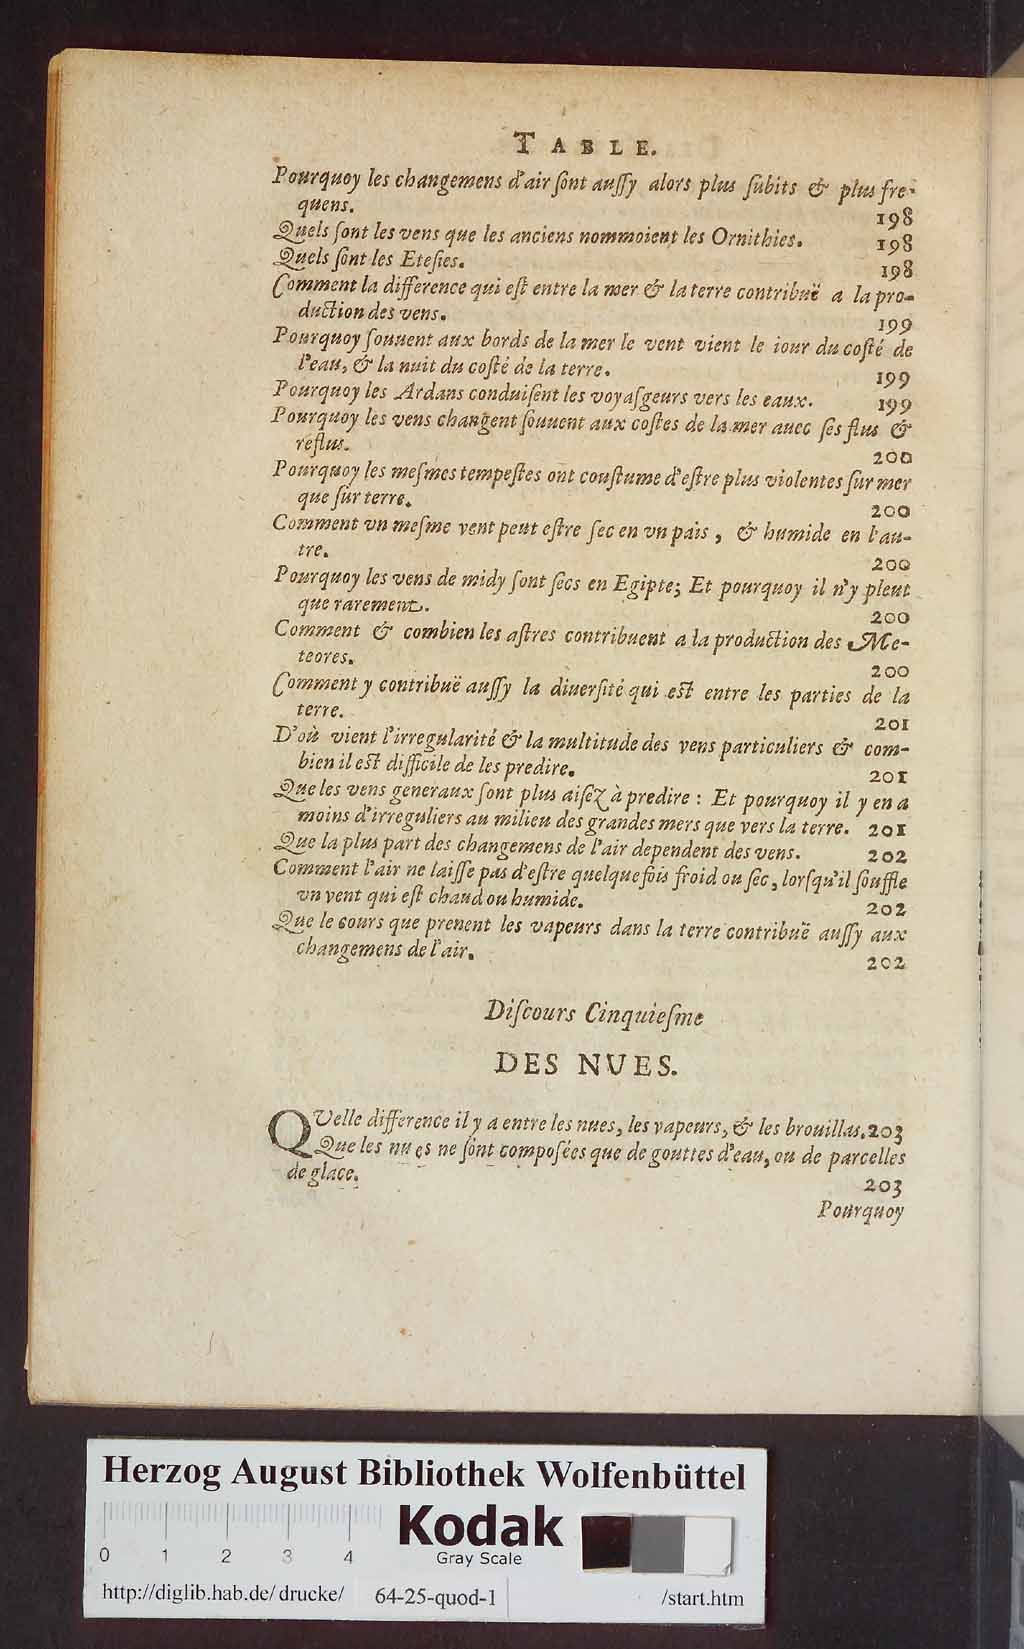 TABLE.
Pourquoy les changemens d'air ſont auſſy alors plus ſubits & plus fre-
quens. 198
Quels ſont les vens que les anciens nommoient les Ornithies. 198
Quels ſont les Eteſies. 198
Comment la difference qui eſt entre la mer & la terre contribuë a la pro-
duction des vens. 199
Pourquoy ſouuent aux bords de la mer le vent vient le iour du coſté de
l'eau, & la nuit du coſté de la terre. 199
Pourquoy les Ardans conduiſent les voyaſgeurs vers les eaux. 199
Pourquoy les vens changent ſouuent aux coſtes de la mer auec ſes flus &
reflus. 200
Pourquoy les meſmes tempeſtes ont couſtume d'eſtre plus violentes ſur mer
que ſur terre. 200
Comment vn meſme vent peut eſtre ſec en vn païs, & humide en l'au-
tre. 200
Pourquoy les vens de midy ſont ſecs en Egipte; Et pourquoy il n'y pleut
que rarement. 200
Comment & combien les aſtres contribuent a la production des Me-
teores. 200
Comment y contribuë auſſy la diuerſité qui eſt entre les parties de la
terre. 201
D'où vient l'irregularité & la multitude des vens particuliers & com-
bien il eſt difficile de les predire. 201
Que les vens generaux ſont plus aiſez à predire: Et pourquoy il y en a
moins d'irreguliers au milieu des grandes mers que vers la terre. 201
Que la plus part des changemens de l'air dependent des vens. 202
Comment l'air ne laiſſe pas d'eſtre quelquefois froid ou ſec, lorſqu'il ſouffle
vn vent qui eſt chaud ou humide. 202
Que le cours que prenent les vapeurs dans la terre contribuë auſſy aux
changemens de l'air. 202
Diſcours Cinquieſme
DES NVES.
QVelle difference il y a entre les nues, les vapeurs, & les brouillas. 203
Que les nues ne ſont compoſées que de gouttes d'eau, ou de parcelles
de glace. 203
Pourquoy
Herzog August Bibliothek Wolfenbüttel
Kodak
Gray Scale
0 1 2 3 4
http://diglib.hab.de/drucke/ 64-25-quod-1 /start.htm